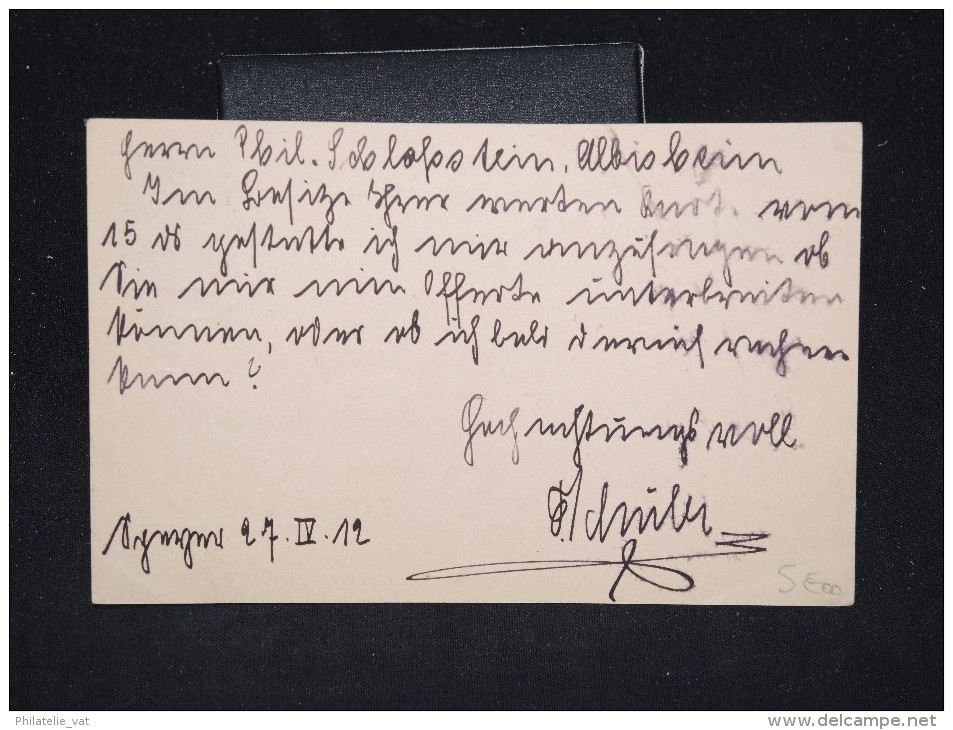 Herrn Phil. Schloßstein, Albisheim
Im Besitze Ihrer werten Karte vom
15 ds gestatte ich mir anzufragen ob
Sie mir nun Offerte unterbreiten
können, oder ob ich bald darauf rechnen
kann?
Hochachtungsvoll
Speyer 27. IV. 12
5 €00
Philatelie_vat
www.delcampe.net